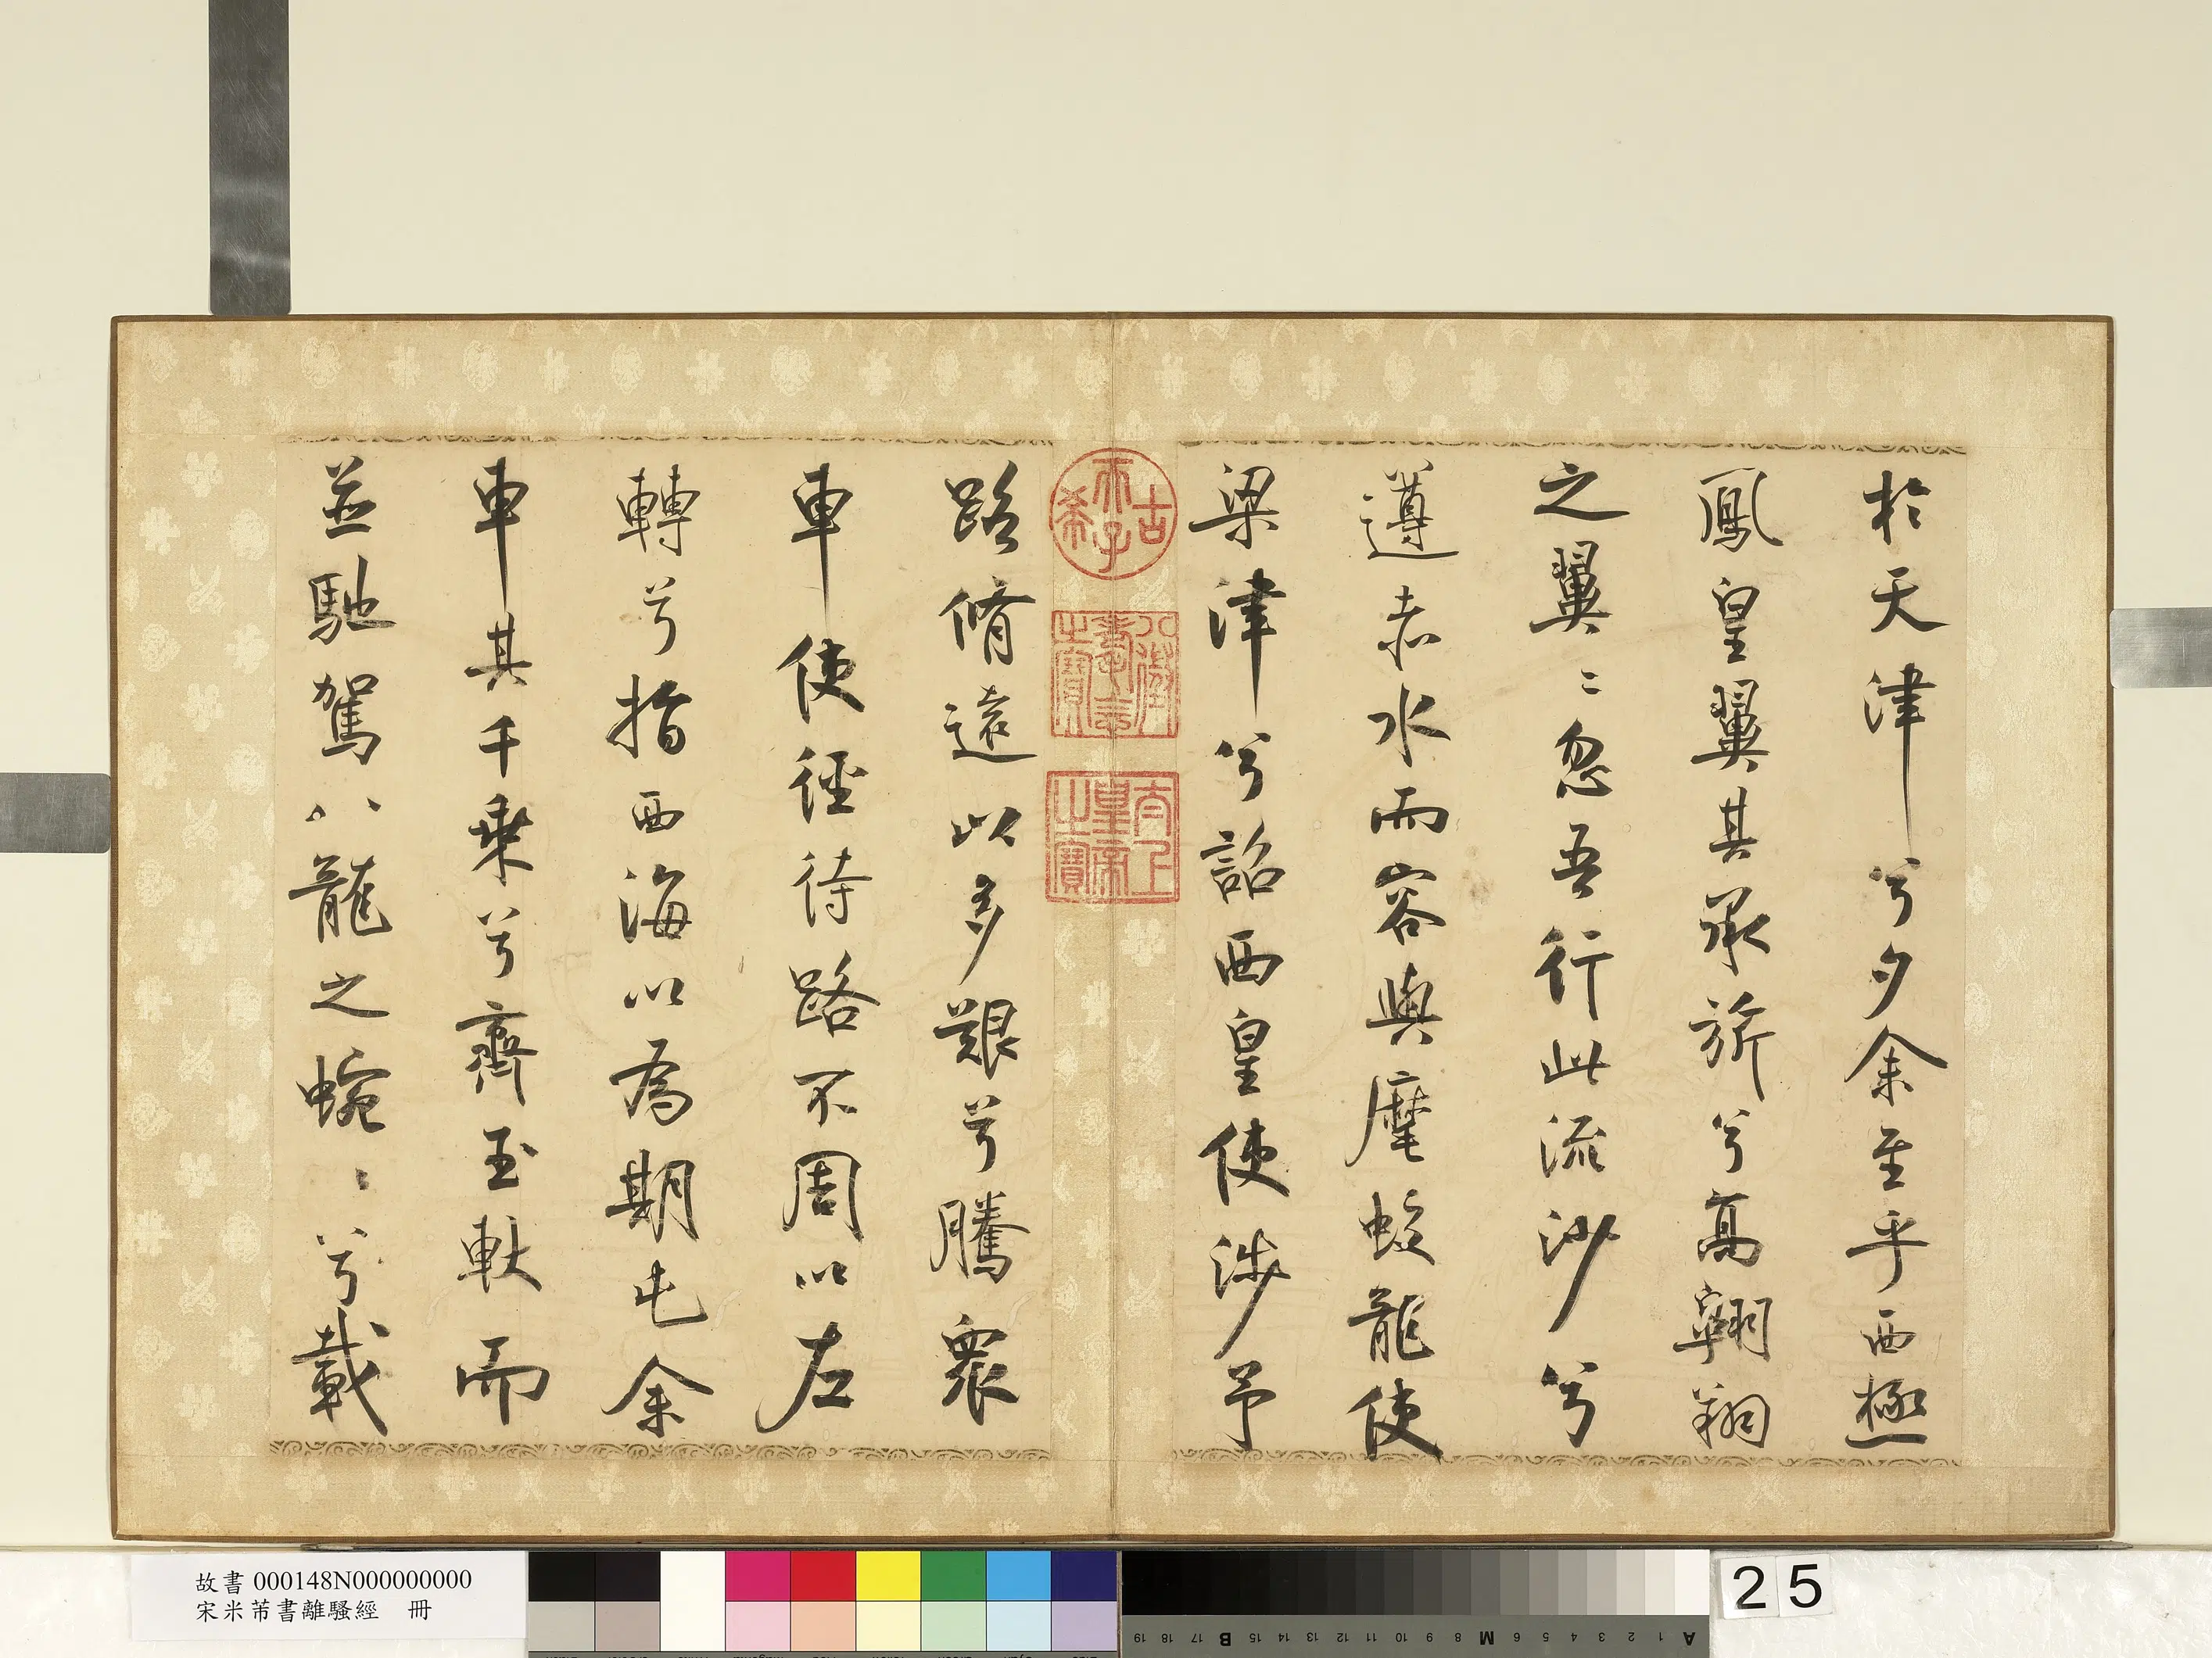 於天津兮夕余至乎西極
鳳皇翼其承旂兮高翱翔
之翼〻忽吾行此流沙兮
遵赤水而容與麾蛟龍使
梁津兮詔西皇使涉予
路脩遠以多艱兮騰衆
車使徑待路不周以左
轉兮指西海以為期屯余
車其千乗兮齊玉軑而
並馳駕八龍之蜿〻兮載
古希天子
八徵耄念之寶
太上皇帝之寶
故書 000148N000000000
宋米芾書離騷經 冊
25
A 1 2 3 4 5 6 M 8 9 10 11 12 13 14 15 B 17 18 19